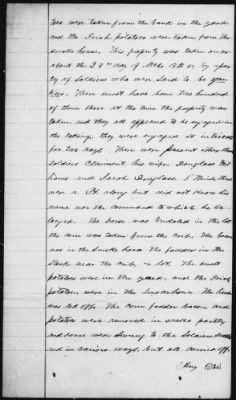 was taken from the bank in the yard
and the Irish potatoes were taken from the
smoke house. This property was taken on or
about the 28th day of by a party
of soldiers who were said to be
There must have been two hundred
of them there at the time the property was
taken and they all appeared to be engaged in
the taking, they were engaged at intervals
for two days. There were present other than
soldiers Claimant, his wife, Douglass
and Sarah Douglass. I think there
were a along but did not know his
name nor the command to which he be
longed. The horse was in the lot
the corn was taken from the crib. The bacon
was in the smoke house. The fodder in the
stack near the crib & lot. The sweet
potatoes were in the yard, and the Irish
potatoes were in the smokehouse. The horse
was led off. The corn fodder bacon and
potatoes were removed in wagons partly
and some were by the soldiers
and in various ways, but all carried off.